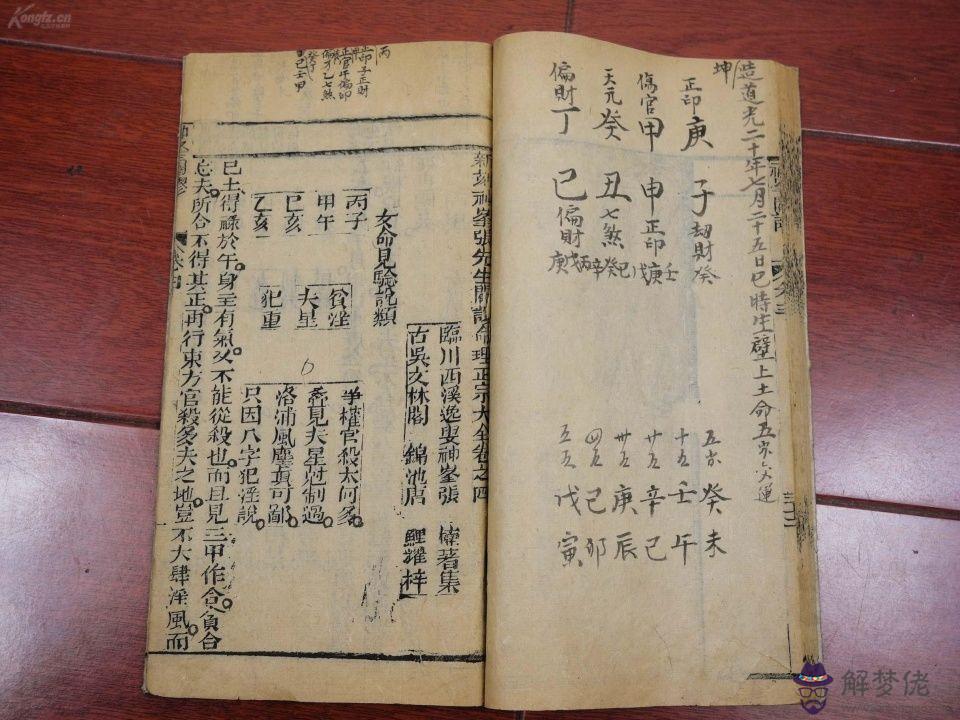 Kongfz.cn
坤
造道光二十年七月二十五日巳時生壁上土命五
正印庚 子劫財癸
傷官甲 申正印戊庚壬
天元癸 丑七煞辛癸己
偏財丁 巳偏財庚戊丙
癸未
十五 壬午
廿五 辛巳
卅五 庚辰
四五 己卯
五五 戊寅
新刻神峯張先生闢謬命理正宗大全卷之四
臨川西溪逸叟神峯張 楠著集
古吳文林閣 錦池唐 鯉耀梓
女命見驗説類
丙子 貧淫 爭權官殺太何多
甲午 夫星 喬見夫星尅制過
己亥 犯重 洛浦風塵真可鄙
乙亥 只因八字犯淫說
巳土得祿於午身主有氣又不能從殺也而且見三甲作合貪合
忘夫所合不得其正再行東方官殺多夫之地豈不大肆淫風而
丙
正印子正財
正官午偏印
偏才乙七煞
日己壬甲
解梦佬